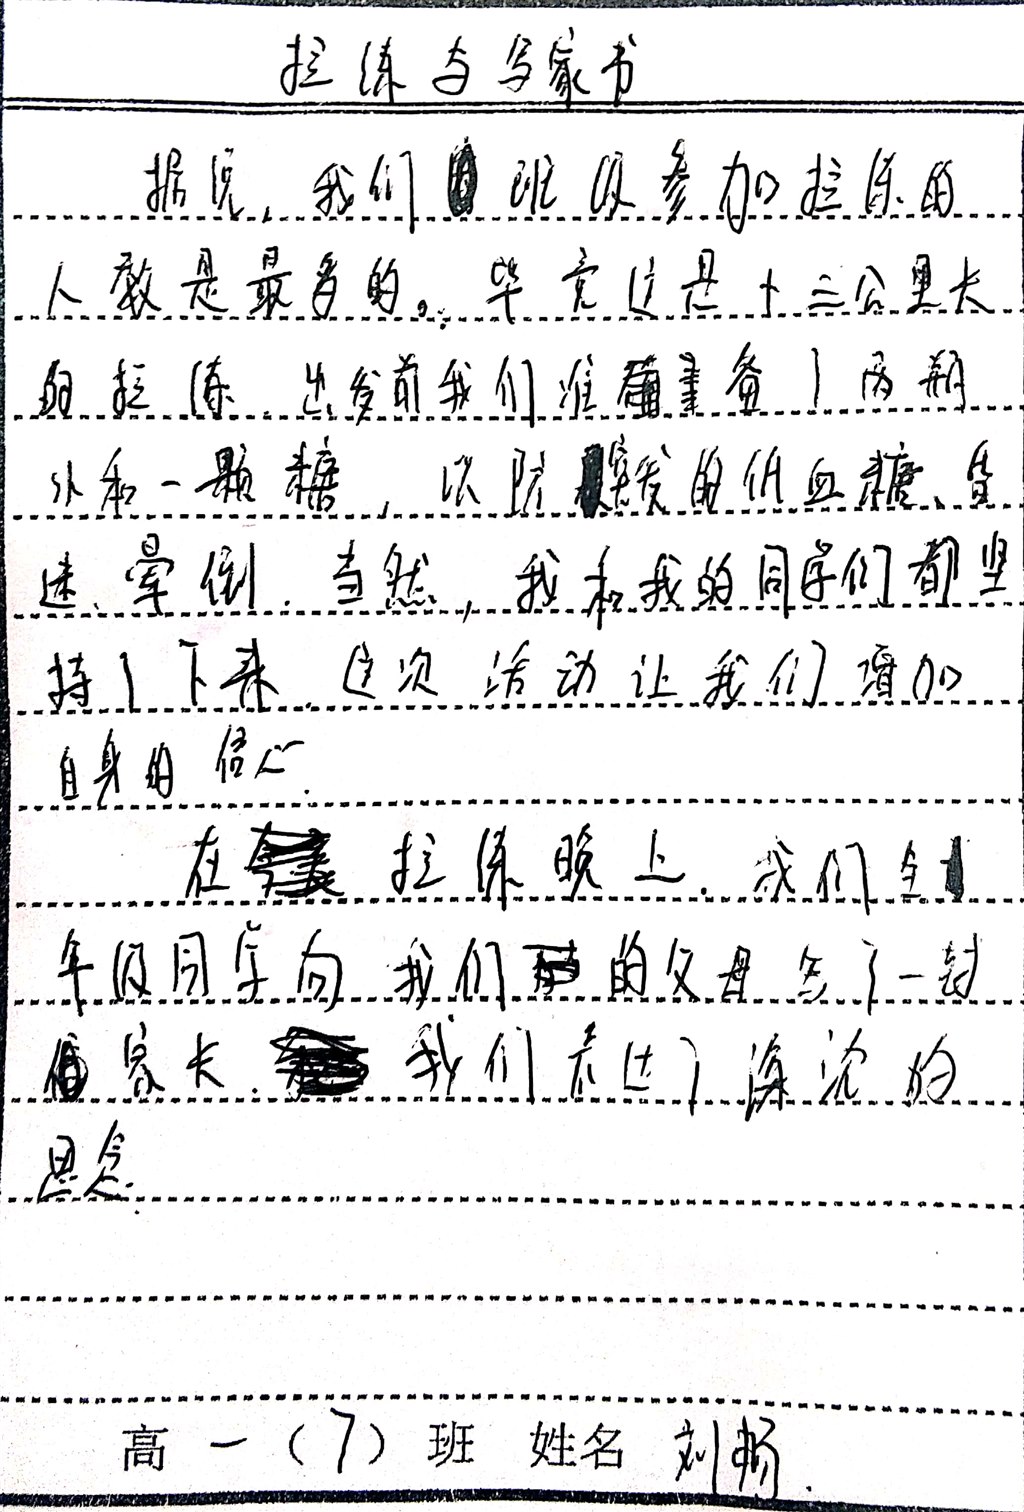 拉练与写家书
据说，我们班级参加拉练的
人数是最多的。毕竟这是十三公里长
的拉练.出发前我们准备了两瓶
水和一颗糖，以防突发的低血糖、昏
迷、晕倒.当然，我和我的同学们都坚
持了下来.这次活动让我们增加
自身的信心.
在拉练晚上.我们全
年级同学向我们的父母写了一封
家长.我们表达了深沉的
思念.
高一（7）班 姓名 刘畅